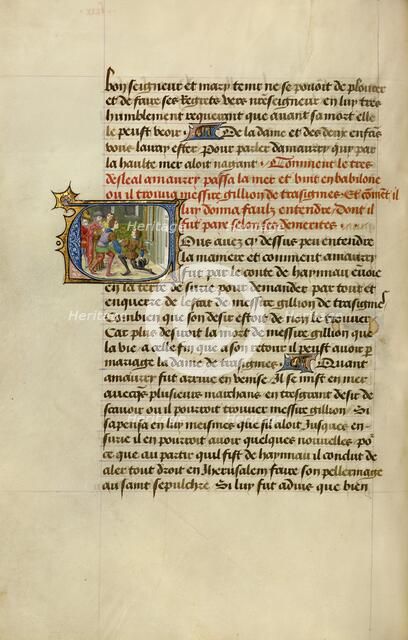 bon seigneur et mary temt ne se pouoit de plourer
et de faire ses regretz vers nreseigneur en luy tres
humblement requerant que auant sa mort elle
le peust veoir De la dame et des deux enfãs
vous lairay ester pour parler damaury qui par
la haulte mer aloit nagant Comment le tres
desleal amaury passa la mer et vint en babilone
ou il trouua messire gillion de trasignies Et cõmẽt il
luy donna faulx entendre dont il
fut paye selon ses demerites
Ous auez cy dessus peu entendre
la maniere et comment amaury
fut par le conte de haynnau enuoie
en la terre de surie pour demander par tout et
enquerre de lestat de messire gillion de trasignies
Combien que son desir estoit de non le trouuer
Car plus desiroit la mort de messire gillion que
la vie a celle fin que a son retour il peust auoir p
mariage la dame de trasignies Quant
amaury fut arriue en venise Il se mist en mer
auecqz plusieurs marchans en tresgrant desir de
scauoir ou il pourroit trouuer messire gillion Si
sapensa en luy meismes que sil aloit Jusques en
surie il en pourroit auoir quelques nouuelles po
ce que au partir quil fist de haynnau il conclut de
aler tout droit en Jherusalem faire son pellerinage
au saint sepulchre Si luy fut aduis que bien
Heritage